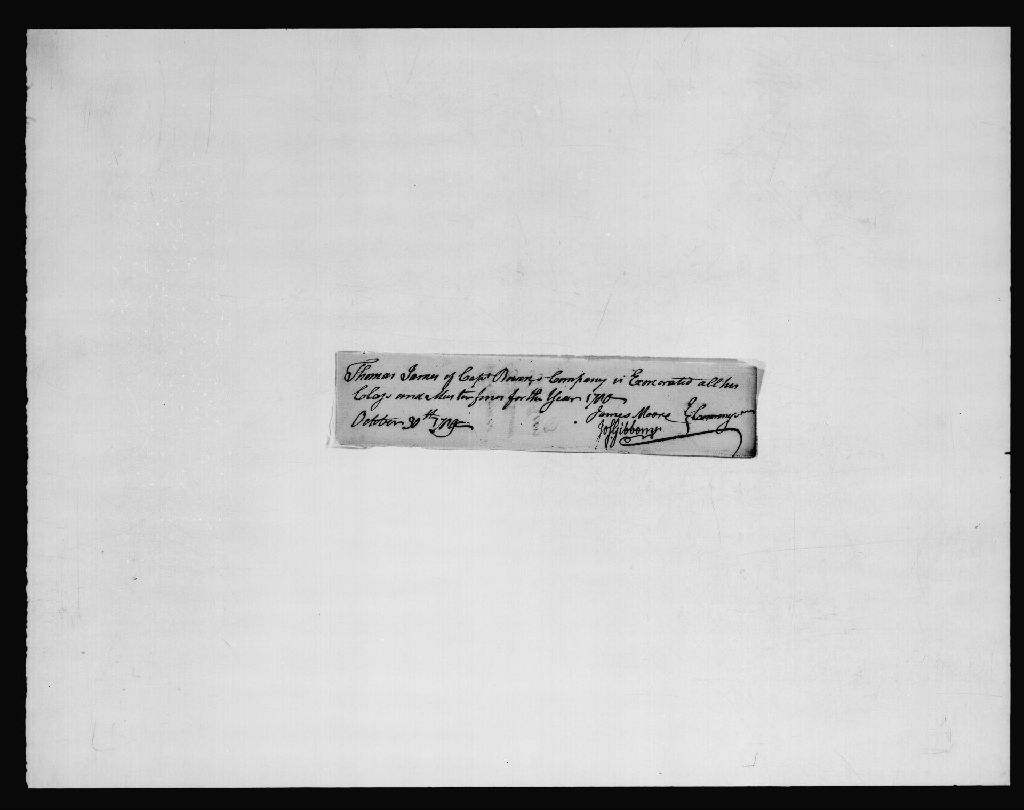 Thomas James of Capt Brown's Company is Exonerated all his
Class and Muster fines for the Year
October 30th
James Moore
Jos Gibbons